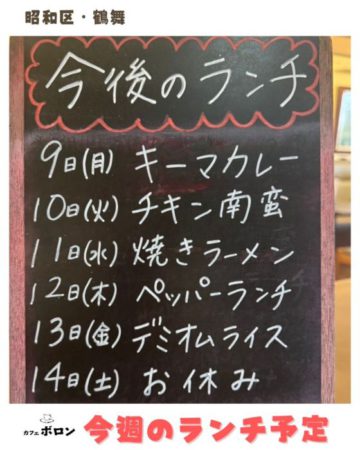 昭和区・鶴舞
今後のランチ
9日(月) キーマカレー
10日(火) チキン南蛮
11日(水) 焼きラーメン
12日(木) ペッパーランチ
13日(金) デミオムライス
14日(土) お休み
カフェ ボロン 今週のランチ予定